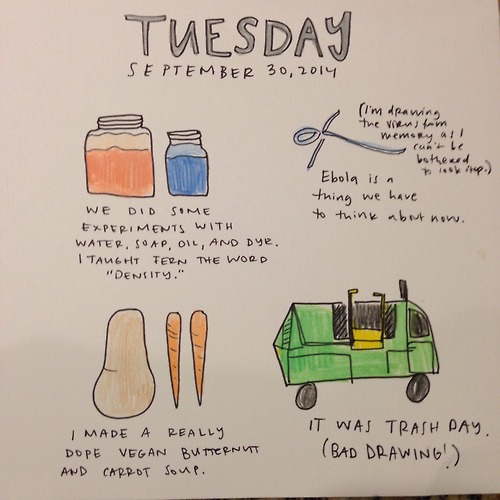 TUESDAY
SEPTEMBER 30, 2014
(I'm drawing
the virus from
memory as I
can't be
bothered
to look it up.)
Ebola is a
thing we have
to think about now.
WE DID SOME
EXPERIMENTS WITH
WATER, SOAP, OIL, AND DYE.
I TAUGHT FERN THE WORD
"DENSITY."
I MADE A REALLY
DOPE VEGAN BUTTERNUT
AND CARROT SOUP.
IT WAS TRASH DAY.
(BAD DRAWING!)